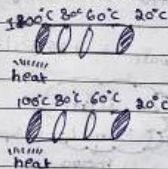 100°C 80°C 60°C 20°C
heat
100°C 80°C 60°C 20°C
heat